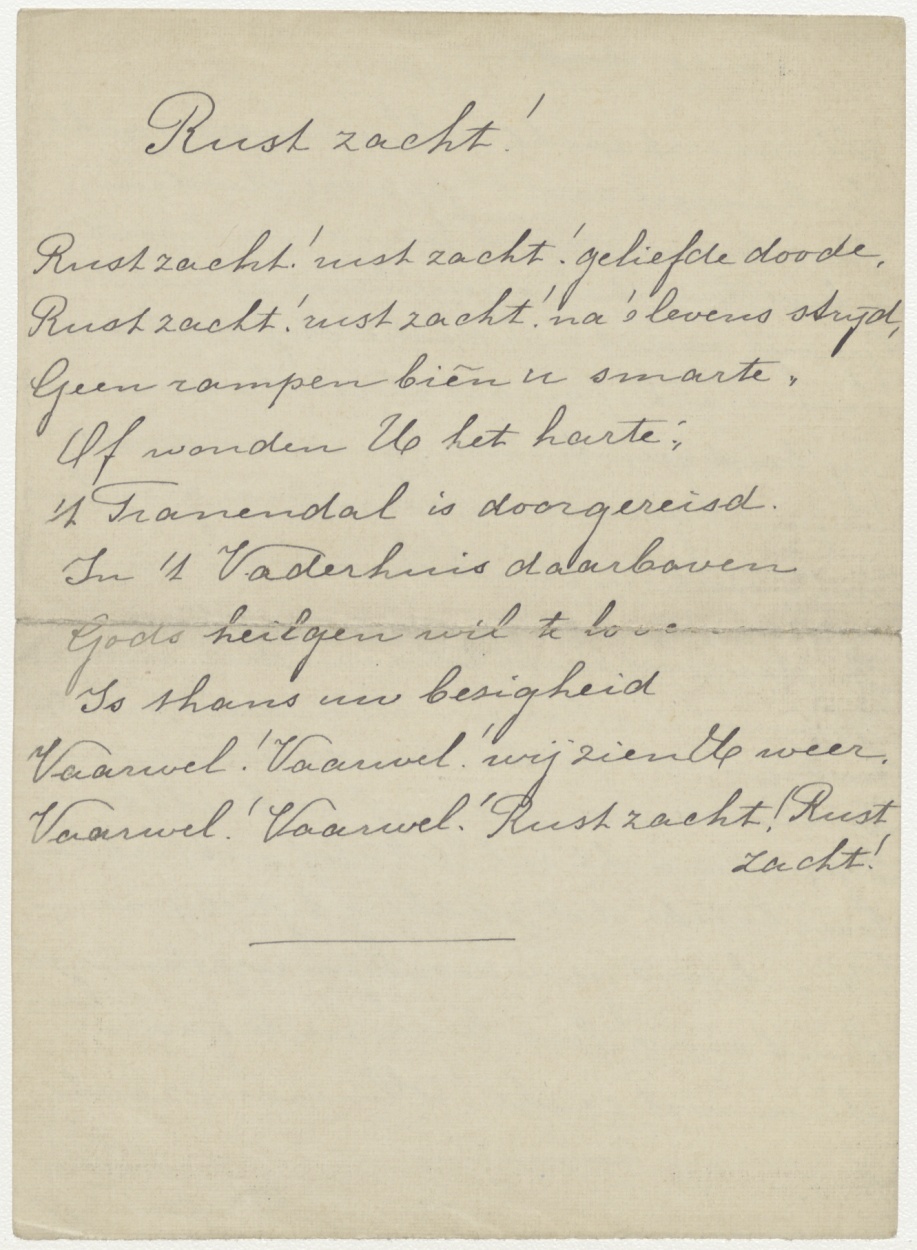 Rust zacht!
Rust zacht! rust zacht! geliefde doode,
Rust zacht! rust zacht! na 's levens strijd,
Geen rampen biên u smarte,
Of wonden U het harte;
't Tranendal is doorgereisd.
In 't Vaderhuis daarboven
Gods heilgen wil te loven
Is thans uw bezigheid
Vaarwel! Vaarwel! wij zien U weer,
Vaarwel! Vaarwel! Rust zacht! Rust
zacht!